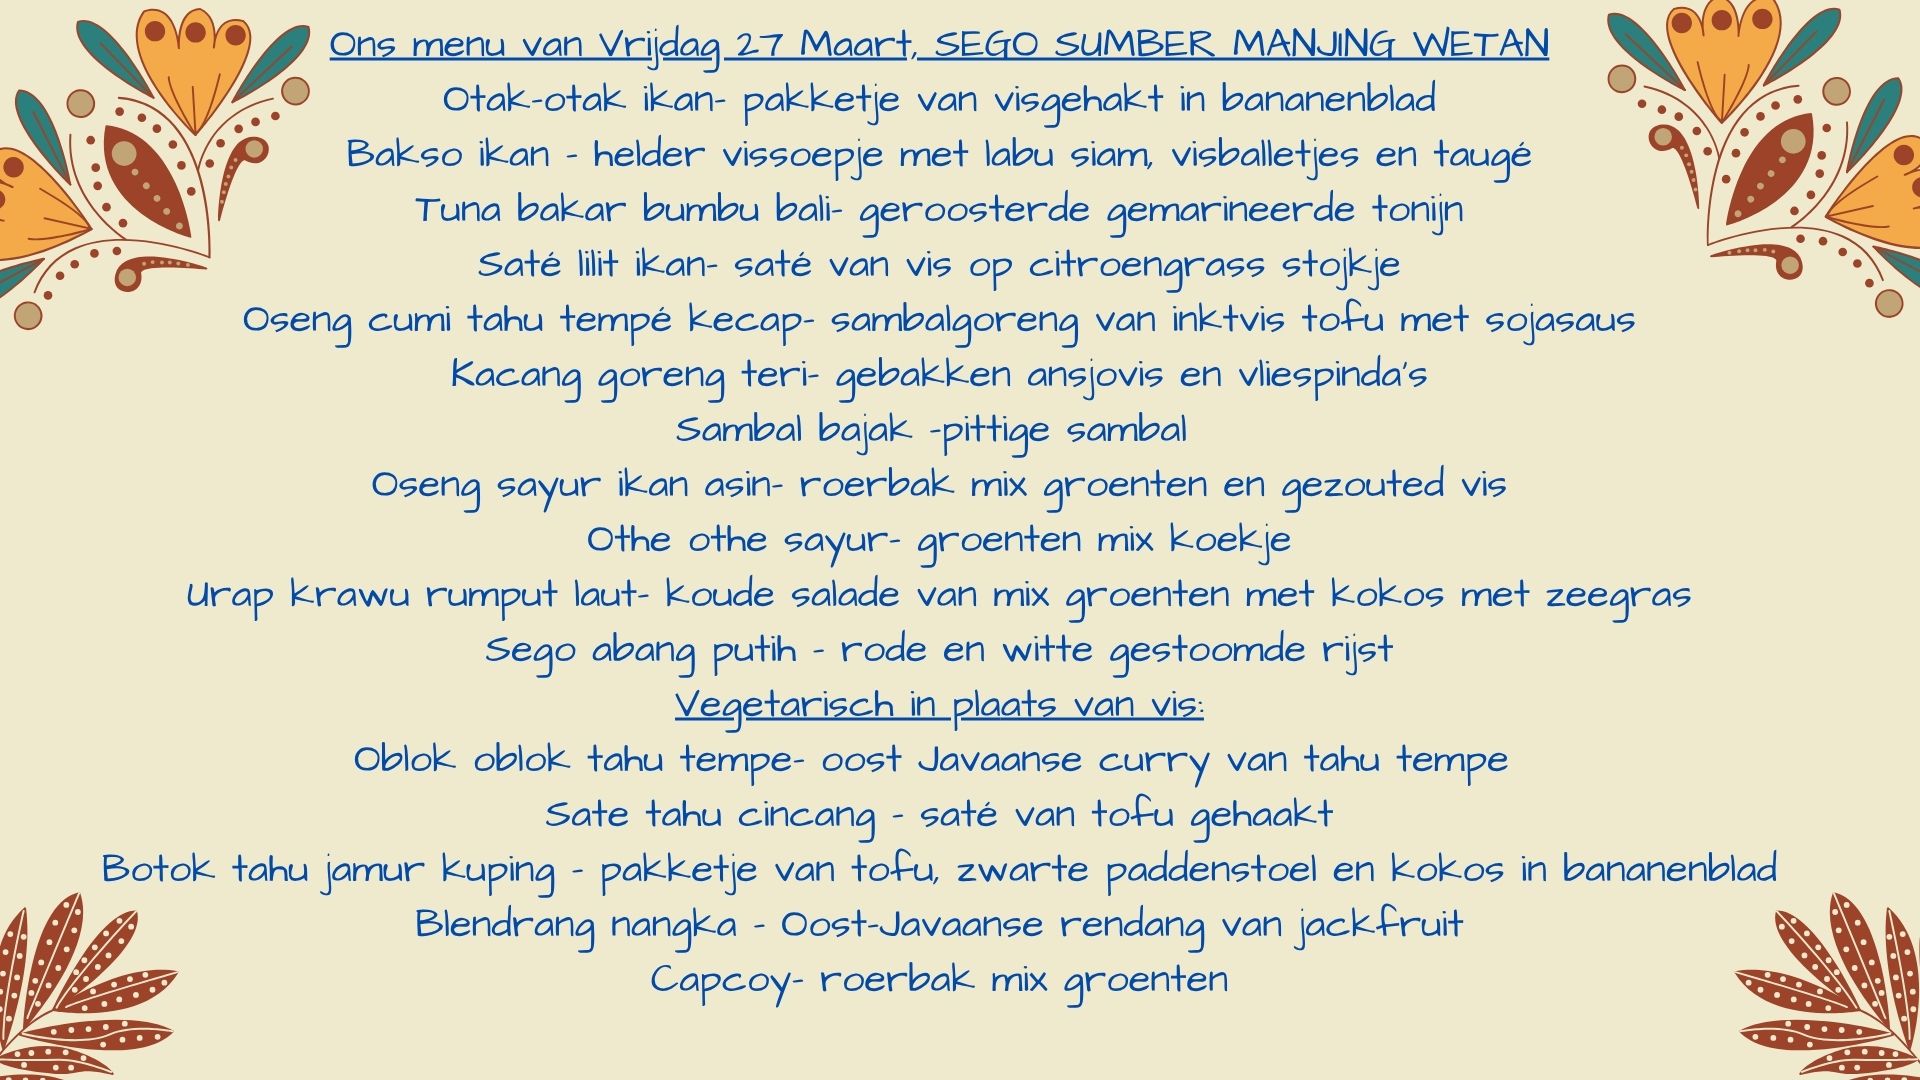 Ons menu van Vrijdag 27 Maart, SEGO SUMBER MANJING WETAN
Otak-otak ikan- pakketje van visgehakt in bananenblad
Bakso ikan - helder vissoepje met labu siam, visballetjes en taugé
Tuna bakar bumbu bali- geroosterde gemarineerde tonijn
Saté lilit ikan- saté van vis op citroengrass stojkje
Oseng cumi tahu tempé kecap- sambalgoreng van inktvis tofu met sojasaus
Kacang goreng teri- gebakken ansjovis en vliespinda's
Sambal bajak -pittige sambal
Oseng sayur ikan asin- roerbak mix groenten en gezouted vis
Othe othe sayur- groenten mix koekje
Urap krawu rumput laut- koude salade van mix groenten met kokos met zeegras
Sego abang putih - rode en witte gestoomde rijst
Vegetarisch in plaats van vis:
Oblok oblok tahu tempe- oost Javaanse curry van tahu tempe
Sate tahu cincang - saté van tofu gehaakt
Botok tahu jamur kuping - pakketje van tofu, zwarte paddenstoel en kokos in bananenblad
Blendrang nangka - Oost-Javaanse rendang van jackfruit
Capcoy- roerbak mix groenten